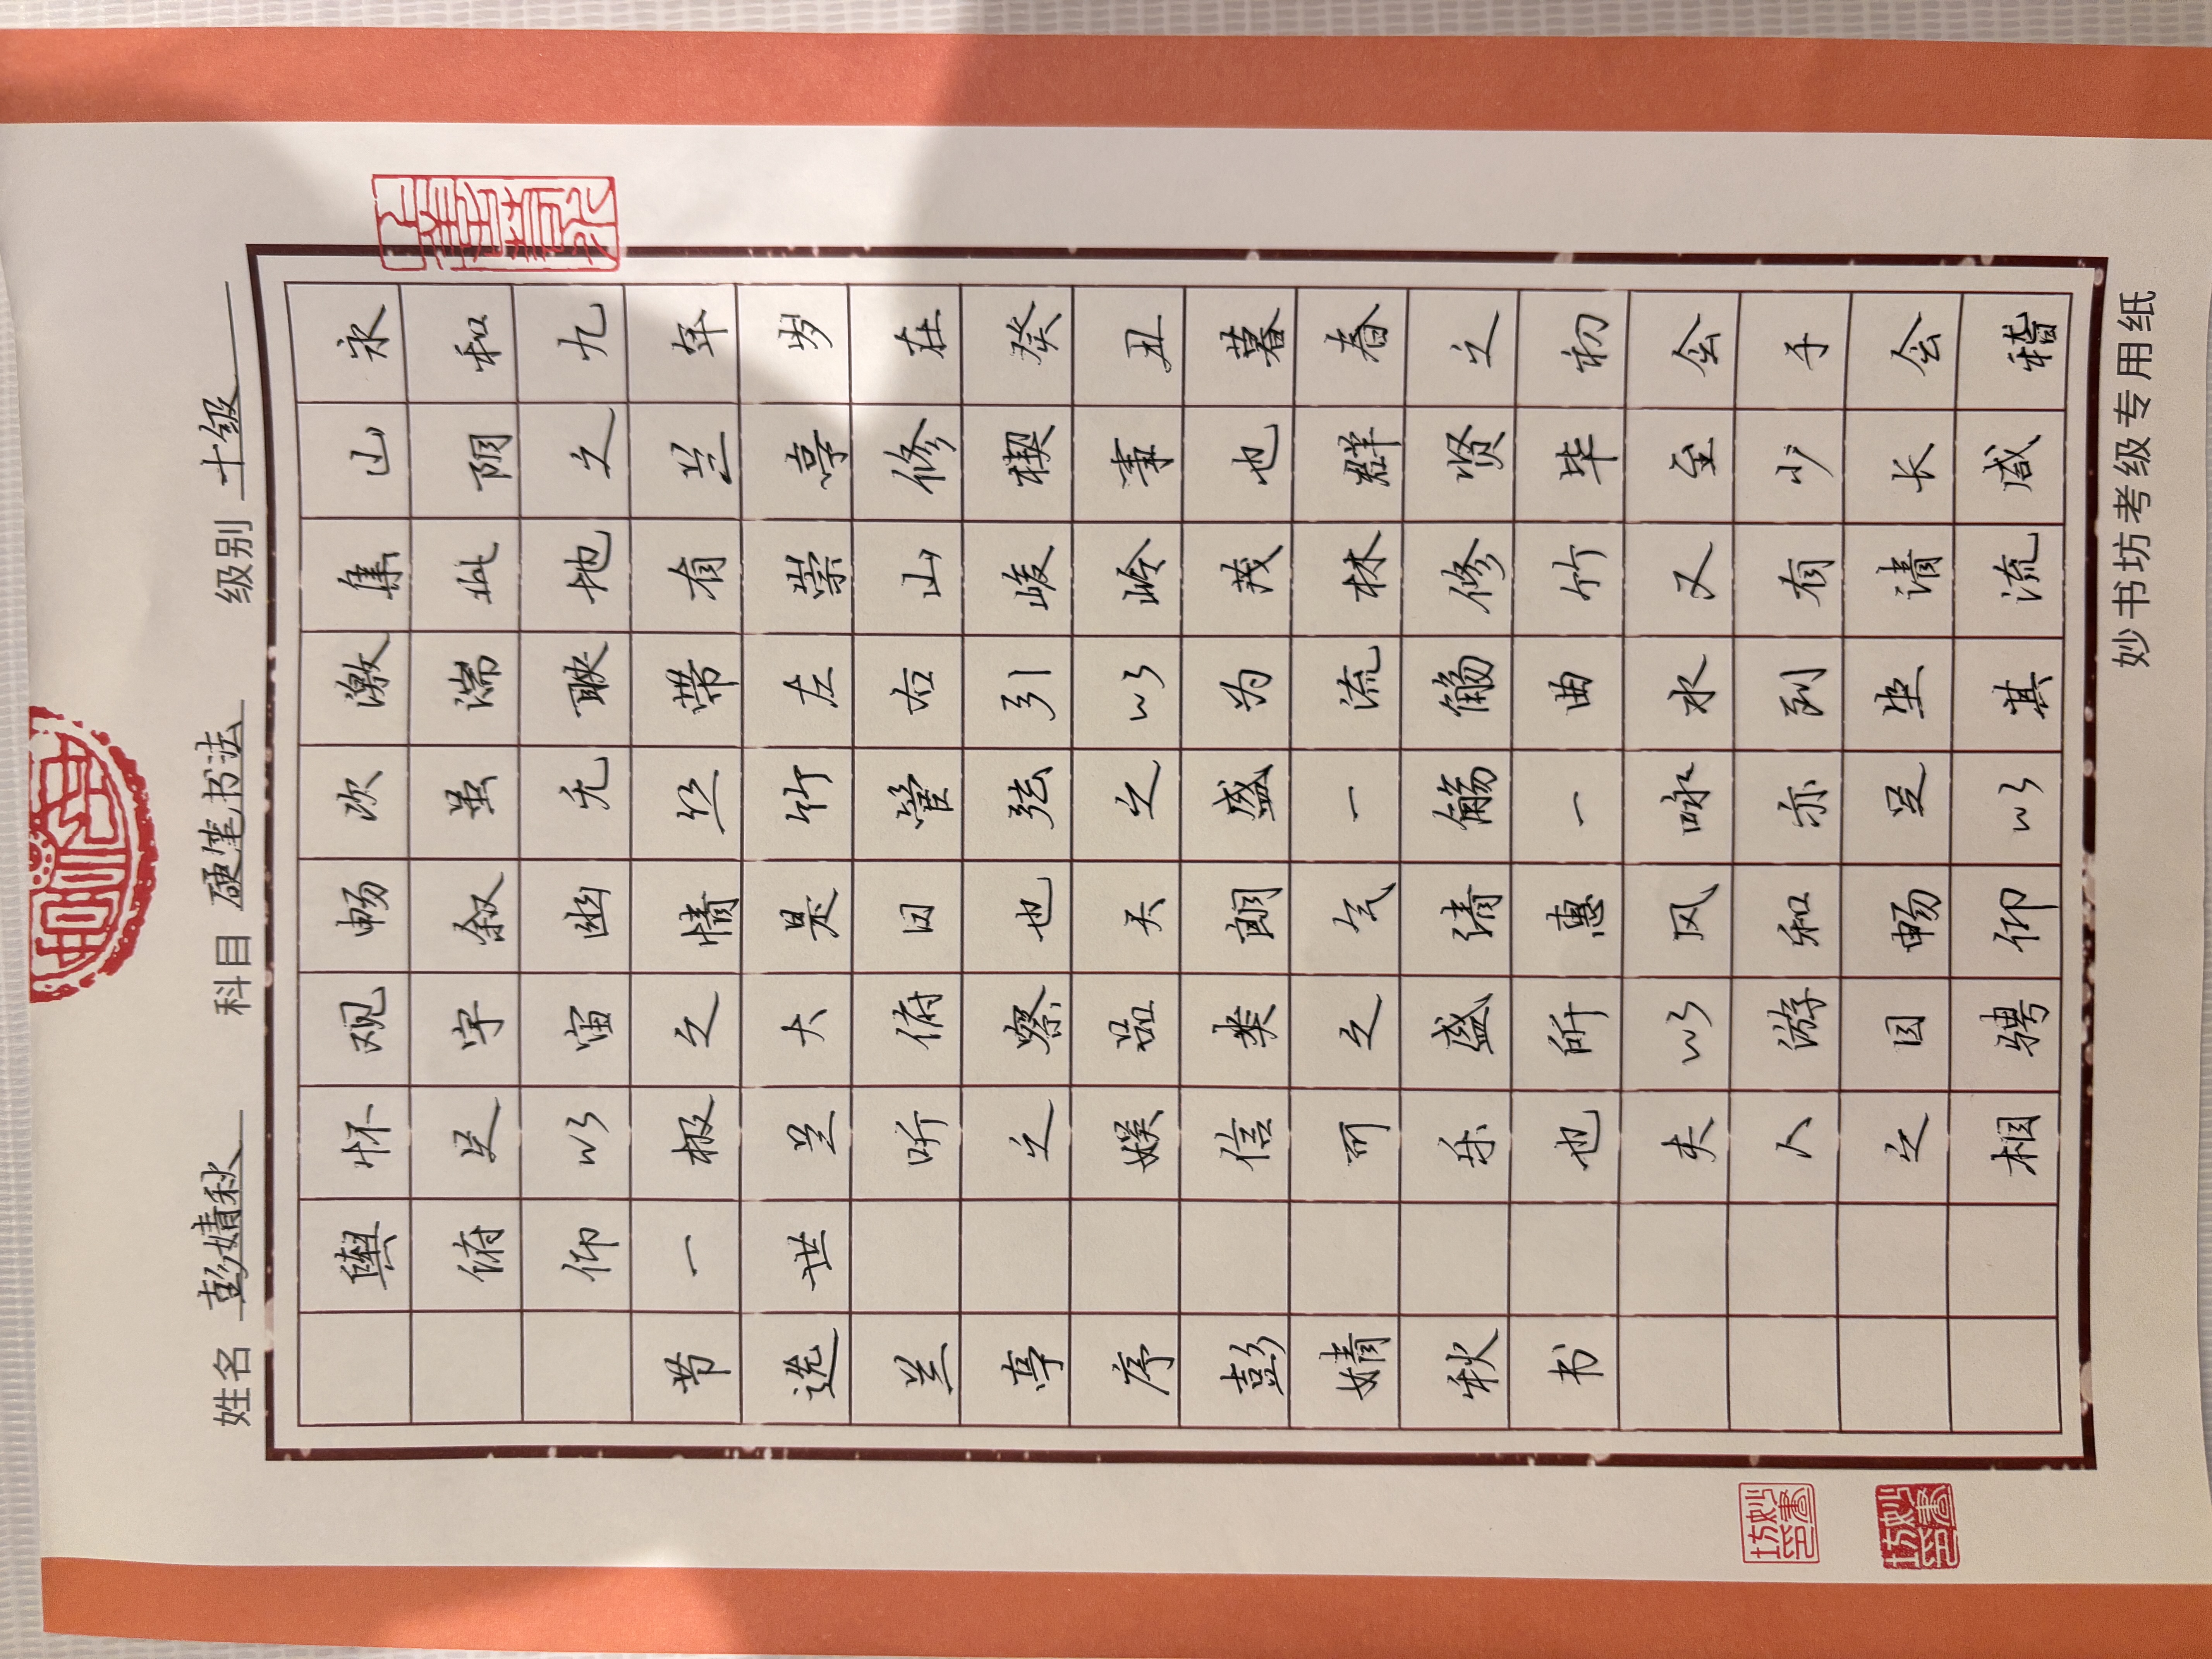 姓名 彭婧秋 科目 硬笔书法 级别 十级
永和九年岁在癸丑暮春之初会于会稽
山阴之兰亭修禊事也群贤毕至少长咸
集此地有崇山峻岭茂林修竹又有清流
激湍映带左右引以为流觞曲水列坐其
次虽无丝竹管弦之盛一觞一咏亦足以
畅叙幽情是日也天朗气清惠风和畅仰
观宇宙之大俯察品类之盛所以游目骋
怀足以极兰听之娱信可乐也夫人之相
與俯仰一世
节选兰亭序彭婧秋书
妙书坊考级专用纸